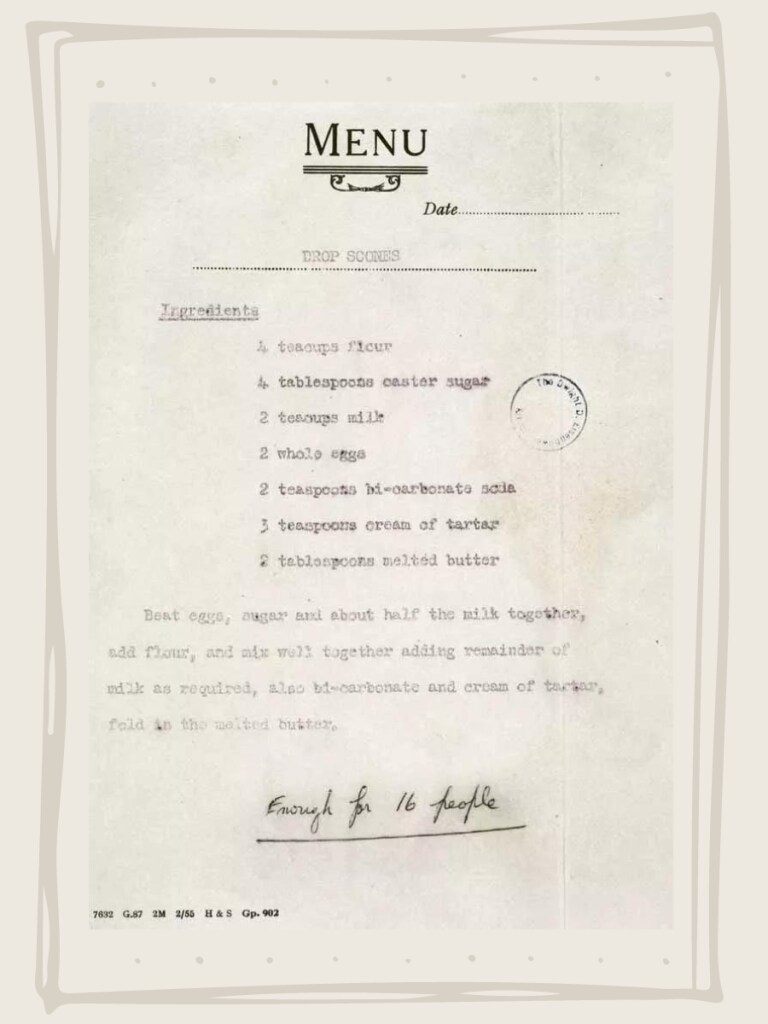 MENU
Date
DROP SCONES
Ingredients
4 teacups flour
4 tablespoons caster sugar
2 teacups milk
2 whole eggs
2 teaspoons bi-carbonate soda
3 teaspoons cream of tartar
2 tablespoons melted butter
Beat eggs, sugar and about half the milk together,
add flour, and mix well together adding remainder of
milk as required, also bi-carbonate and cream of tartar,
fold in the melted butter.
Enough for 16 people
7632 G.87 2M 2/55 H & S Gp. 902
The Dwight D.